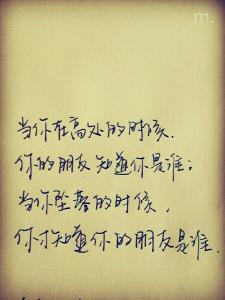 m.
当你在高处的时候.
你的朋友知道你是谁；
当你坠落的时候，
你才知道你的朋友是谁.